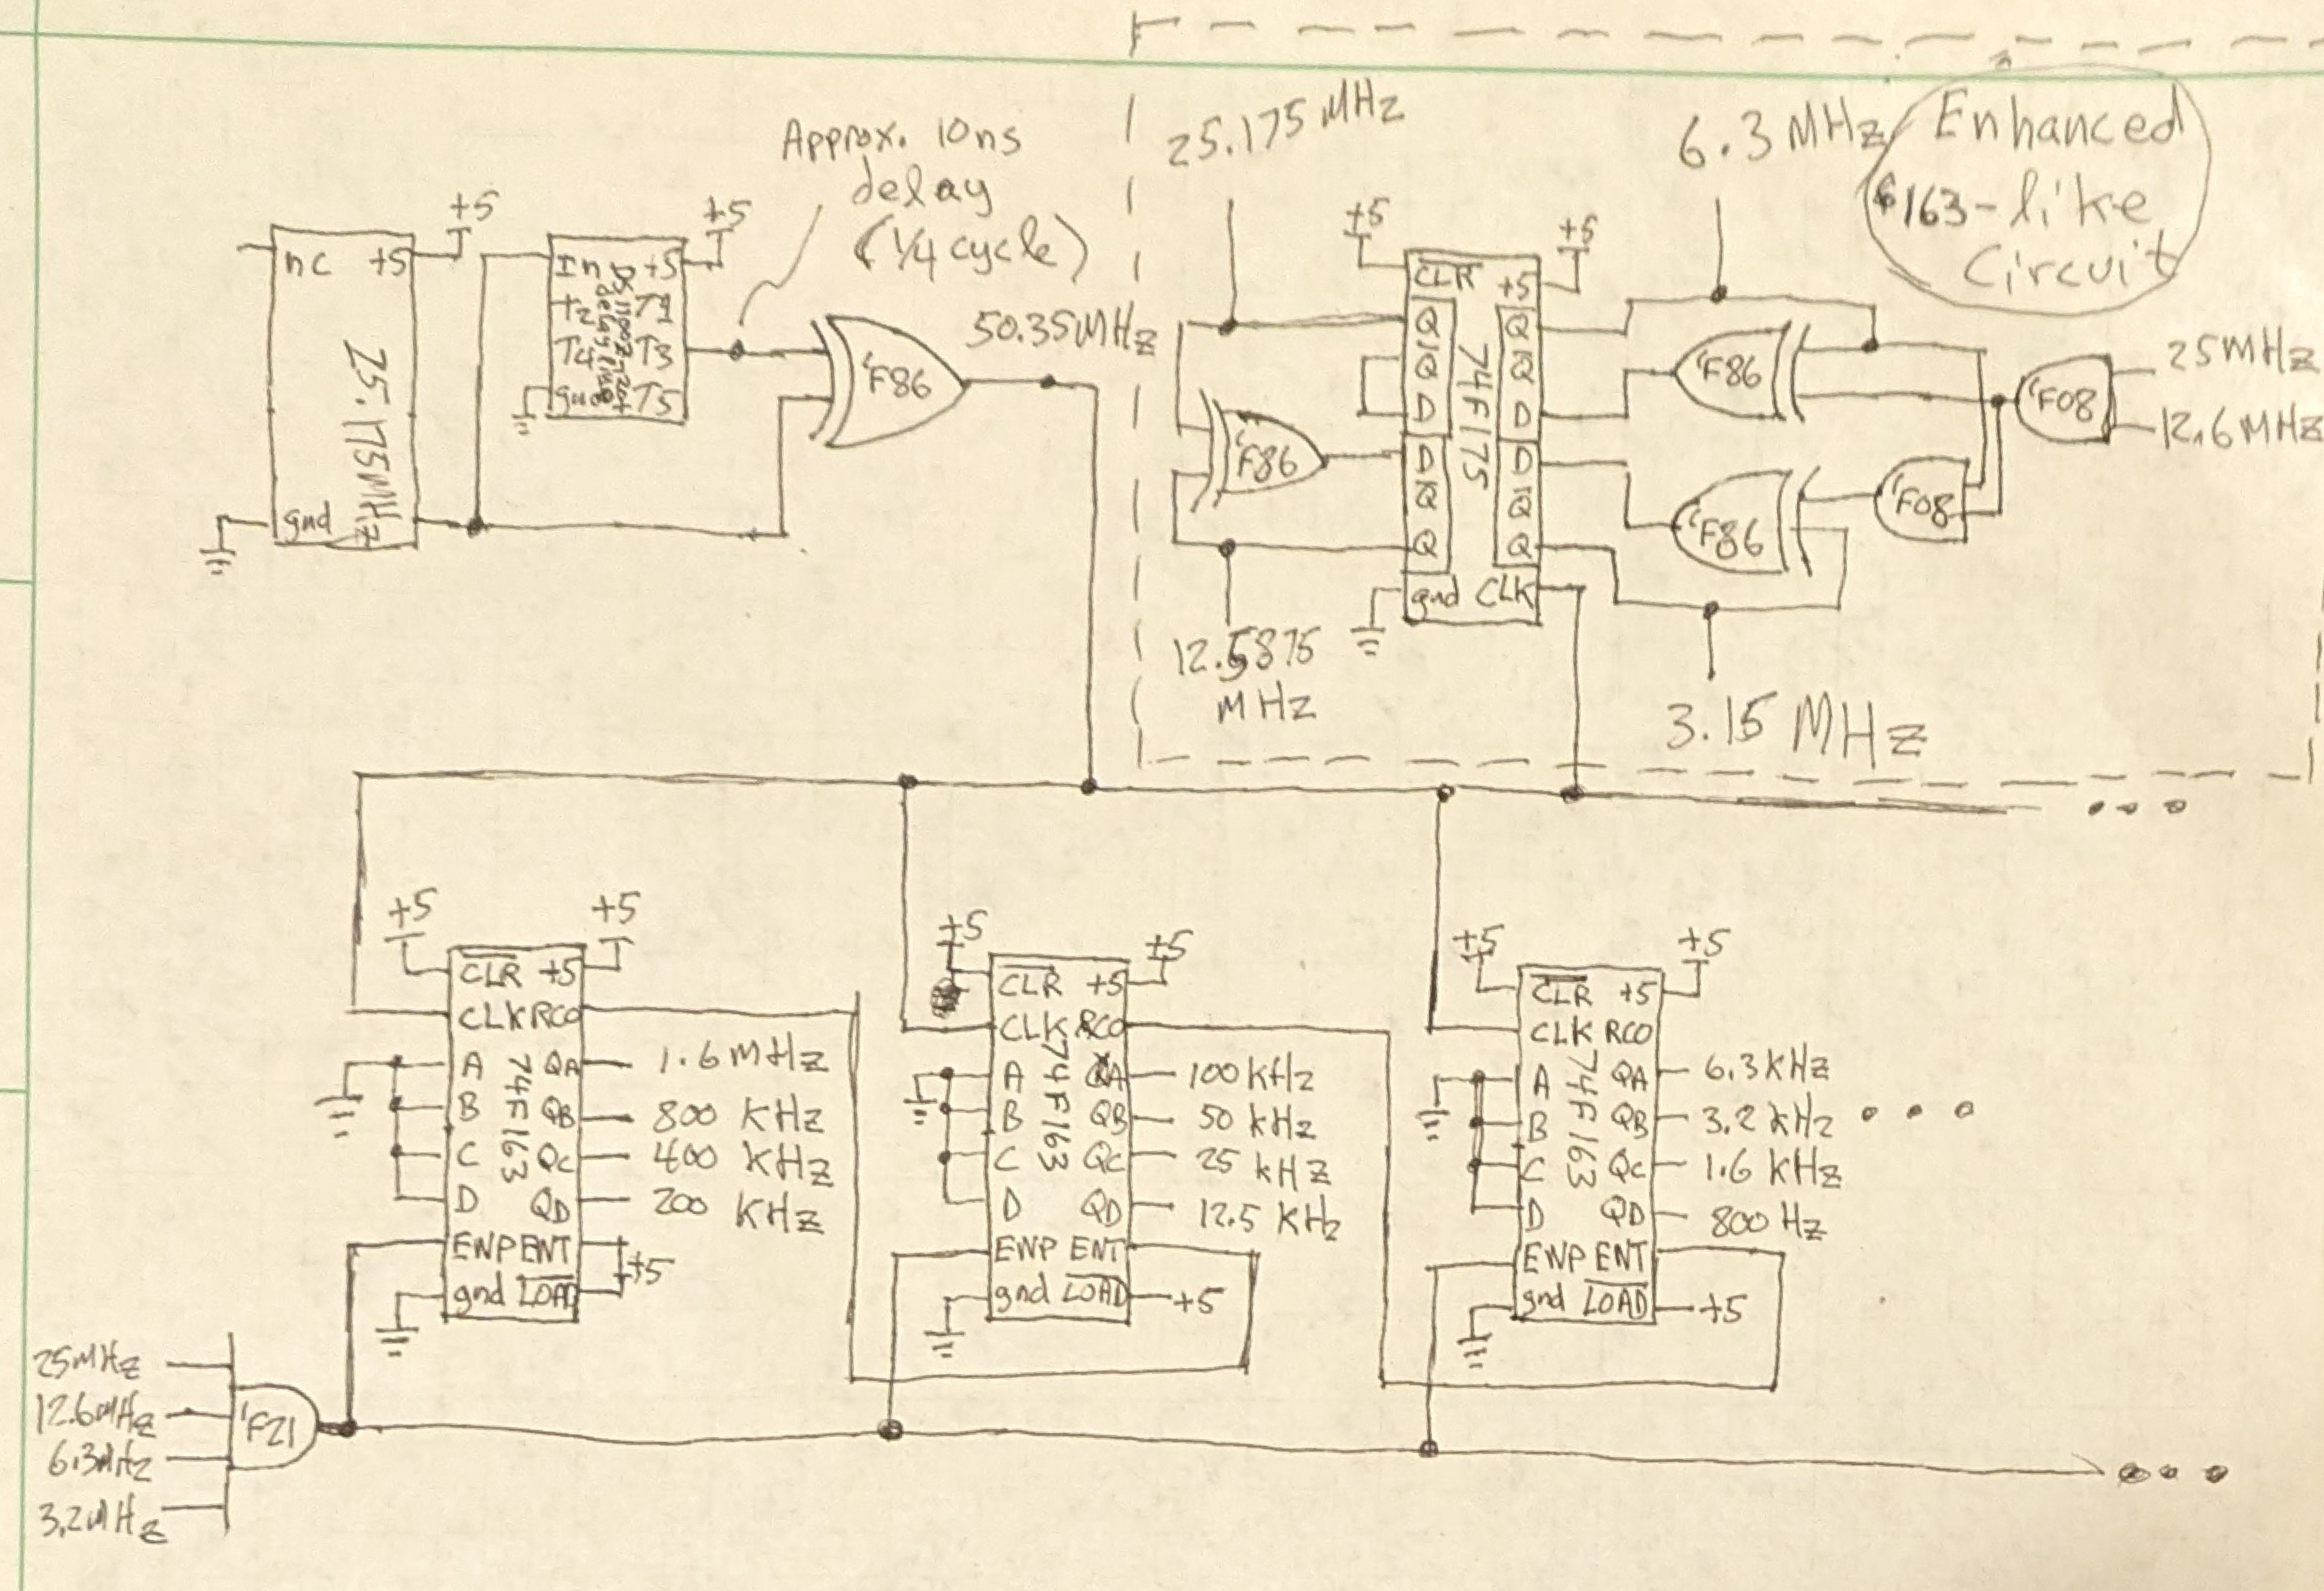 Approx. 10ns
delay
(1/4 cycle)
25.175 MHz
6.3 MHz
Enhanced
'163-like
Circuit
+5
nc +5
25.175MHz
gnd
+5
In +5
T2 T1
T4 T3
gnd T5
'F86
50.35MHz
+5
+5
CLR +5
Q Q
/Q /Q
D D
D D
/Q /Q
Q Q
gnd CLK
74F175
'F86
'F86
'F86
'F08
'F08
25MHz
12.6MHz
12.5875
MHz
3.15 MHz
• • •
+5
+5
CLR +5
CLK RCO
A QA
B QB
C QC
D QD
ENP ENT
gnd LOAD
74F163
1.6 MHz
800 KHz
400 KHz
200 KHz
+5
+5
+5
CLR +5
CLK RCO
A QA
B QB
C QC
D QD
ENP ENT
gnd LOAD
74F163
100 kHz
50 kHz
25 kHz
12.5 KHz
+5
+5
+5
CLR +5
CLK RCO
A QA
B QB
C QC
D QD
ENP ENT
gnd LOAD
74F163
6.3 kHz
3.2 kHz • • •
1.6 kHz
800 Hz
+5
25MHz
12.6MHz
6.3MHz
3.2MHz
'F21
• • •